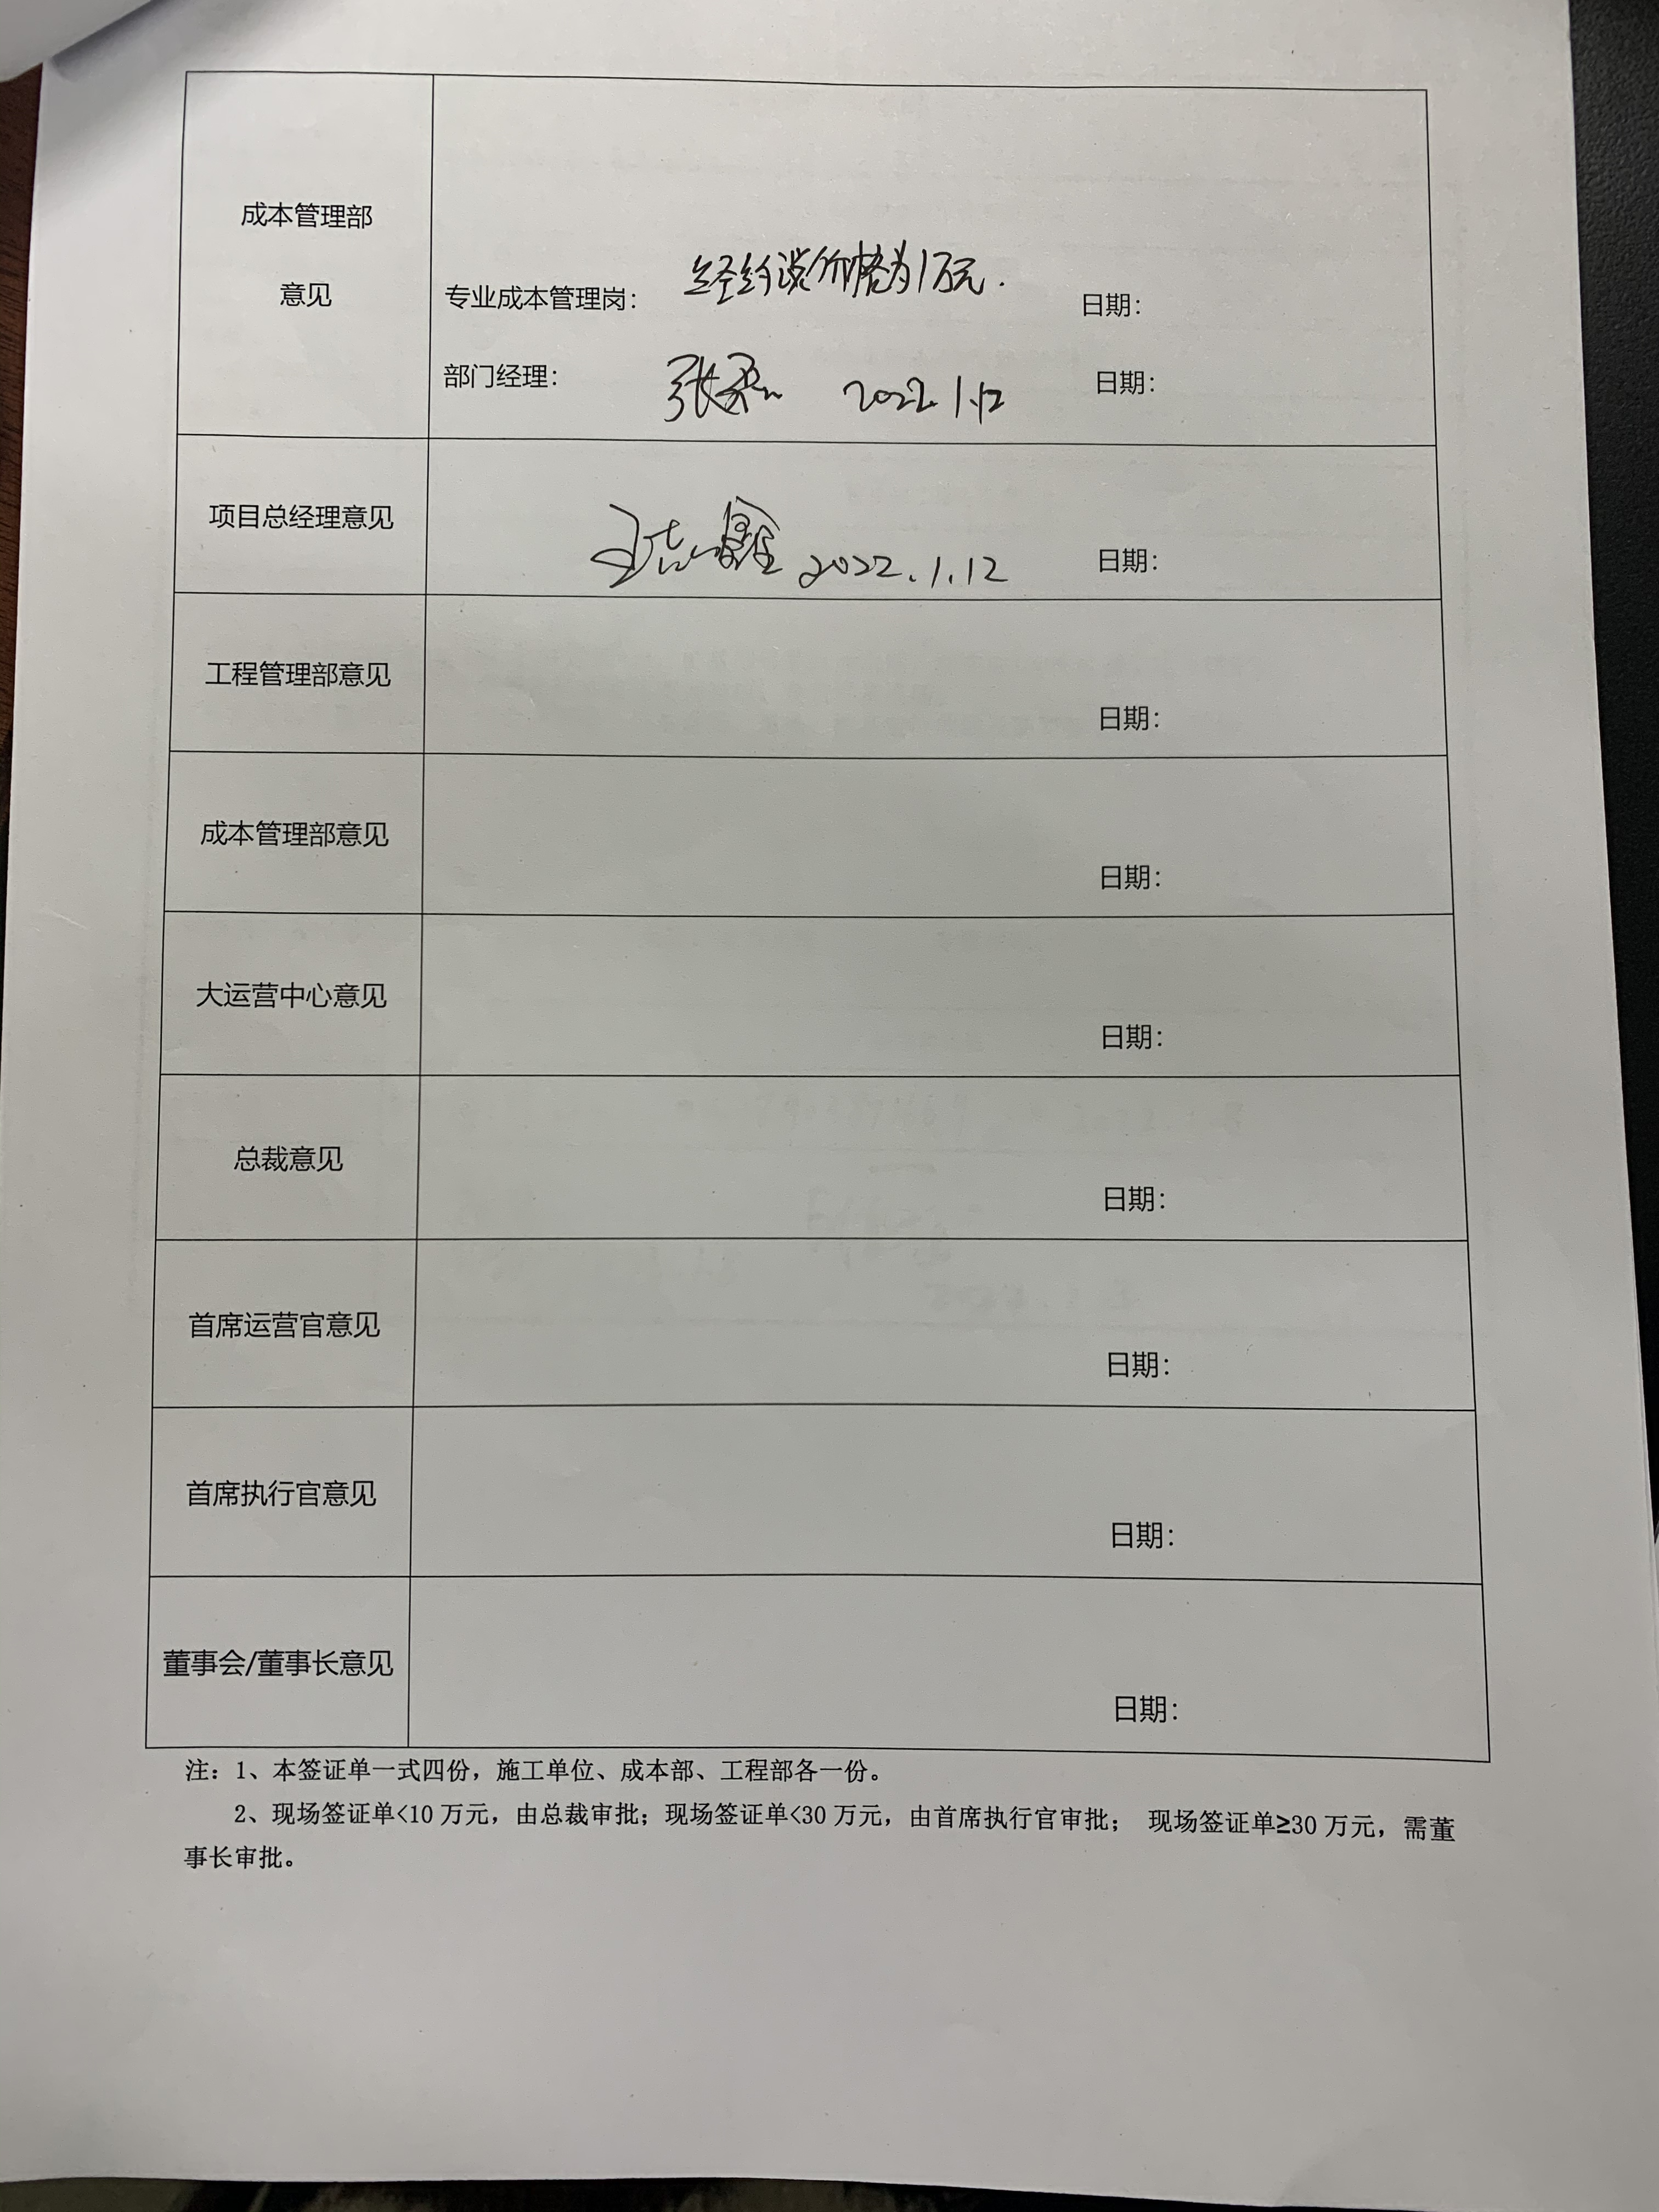 成本管理部
意见
专业成本管理岗： 经约谈价格为1万元. 日期：
部门经理： 张 2022.1.12 日期：
项目总经理意见
2022.1.12 日期：
工程管理部意见
日期：
成本管理部意见
日期：
大运营中心意见
日期：
总裁意见
日期：
首席运营官意见
日期：
首席执行官意见
日期：
董事会/董事长意见
日期：
注：1、本签证单一式四份，施工单位、成本部、工程部各一份。
2、现场签证单<10 万元，由总裁审批；现场签证单<30 万元，由首席执行官审批； 现场签证单≥30 万元，需董
事长审批。